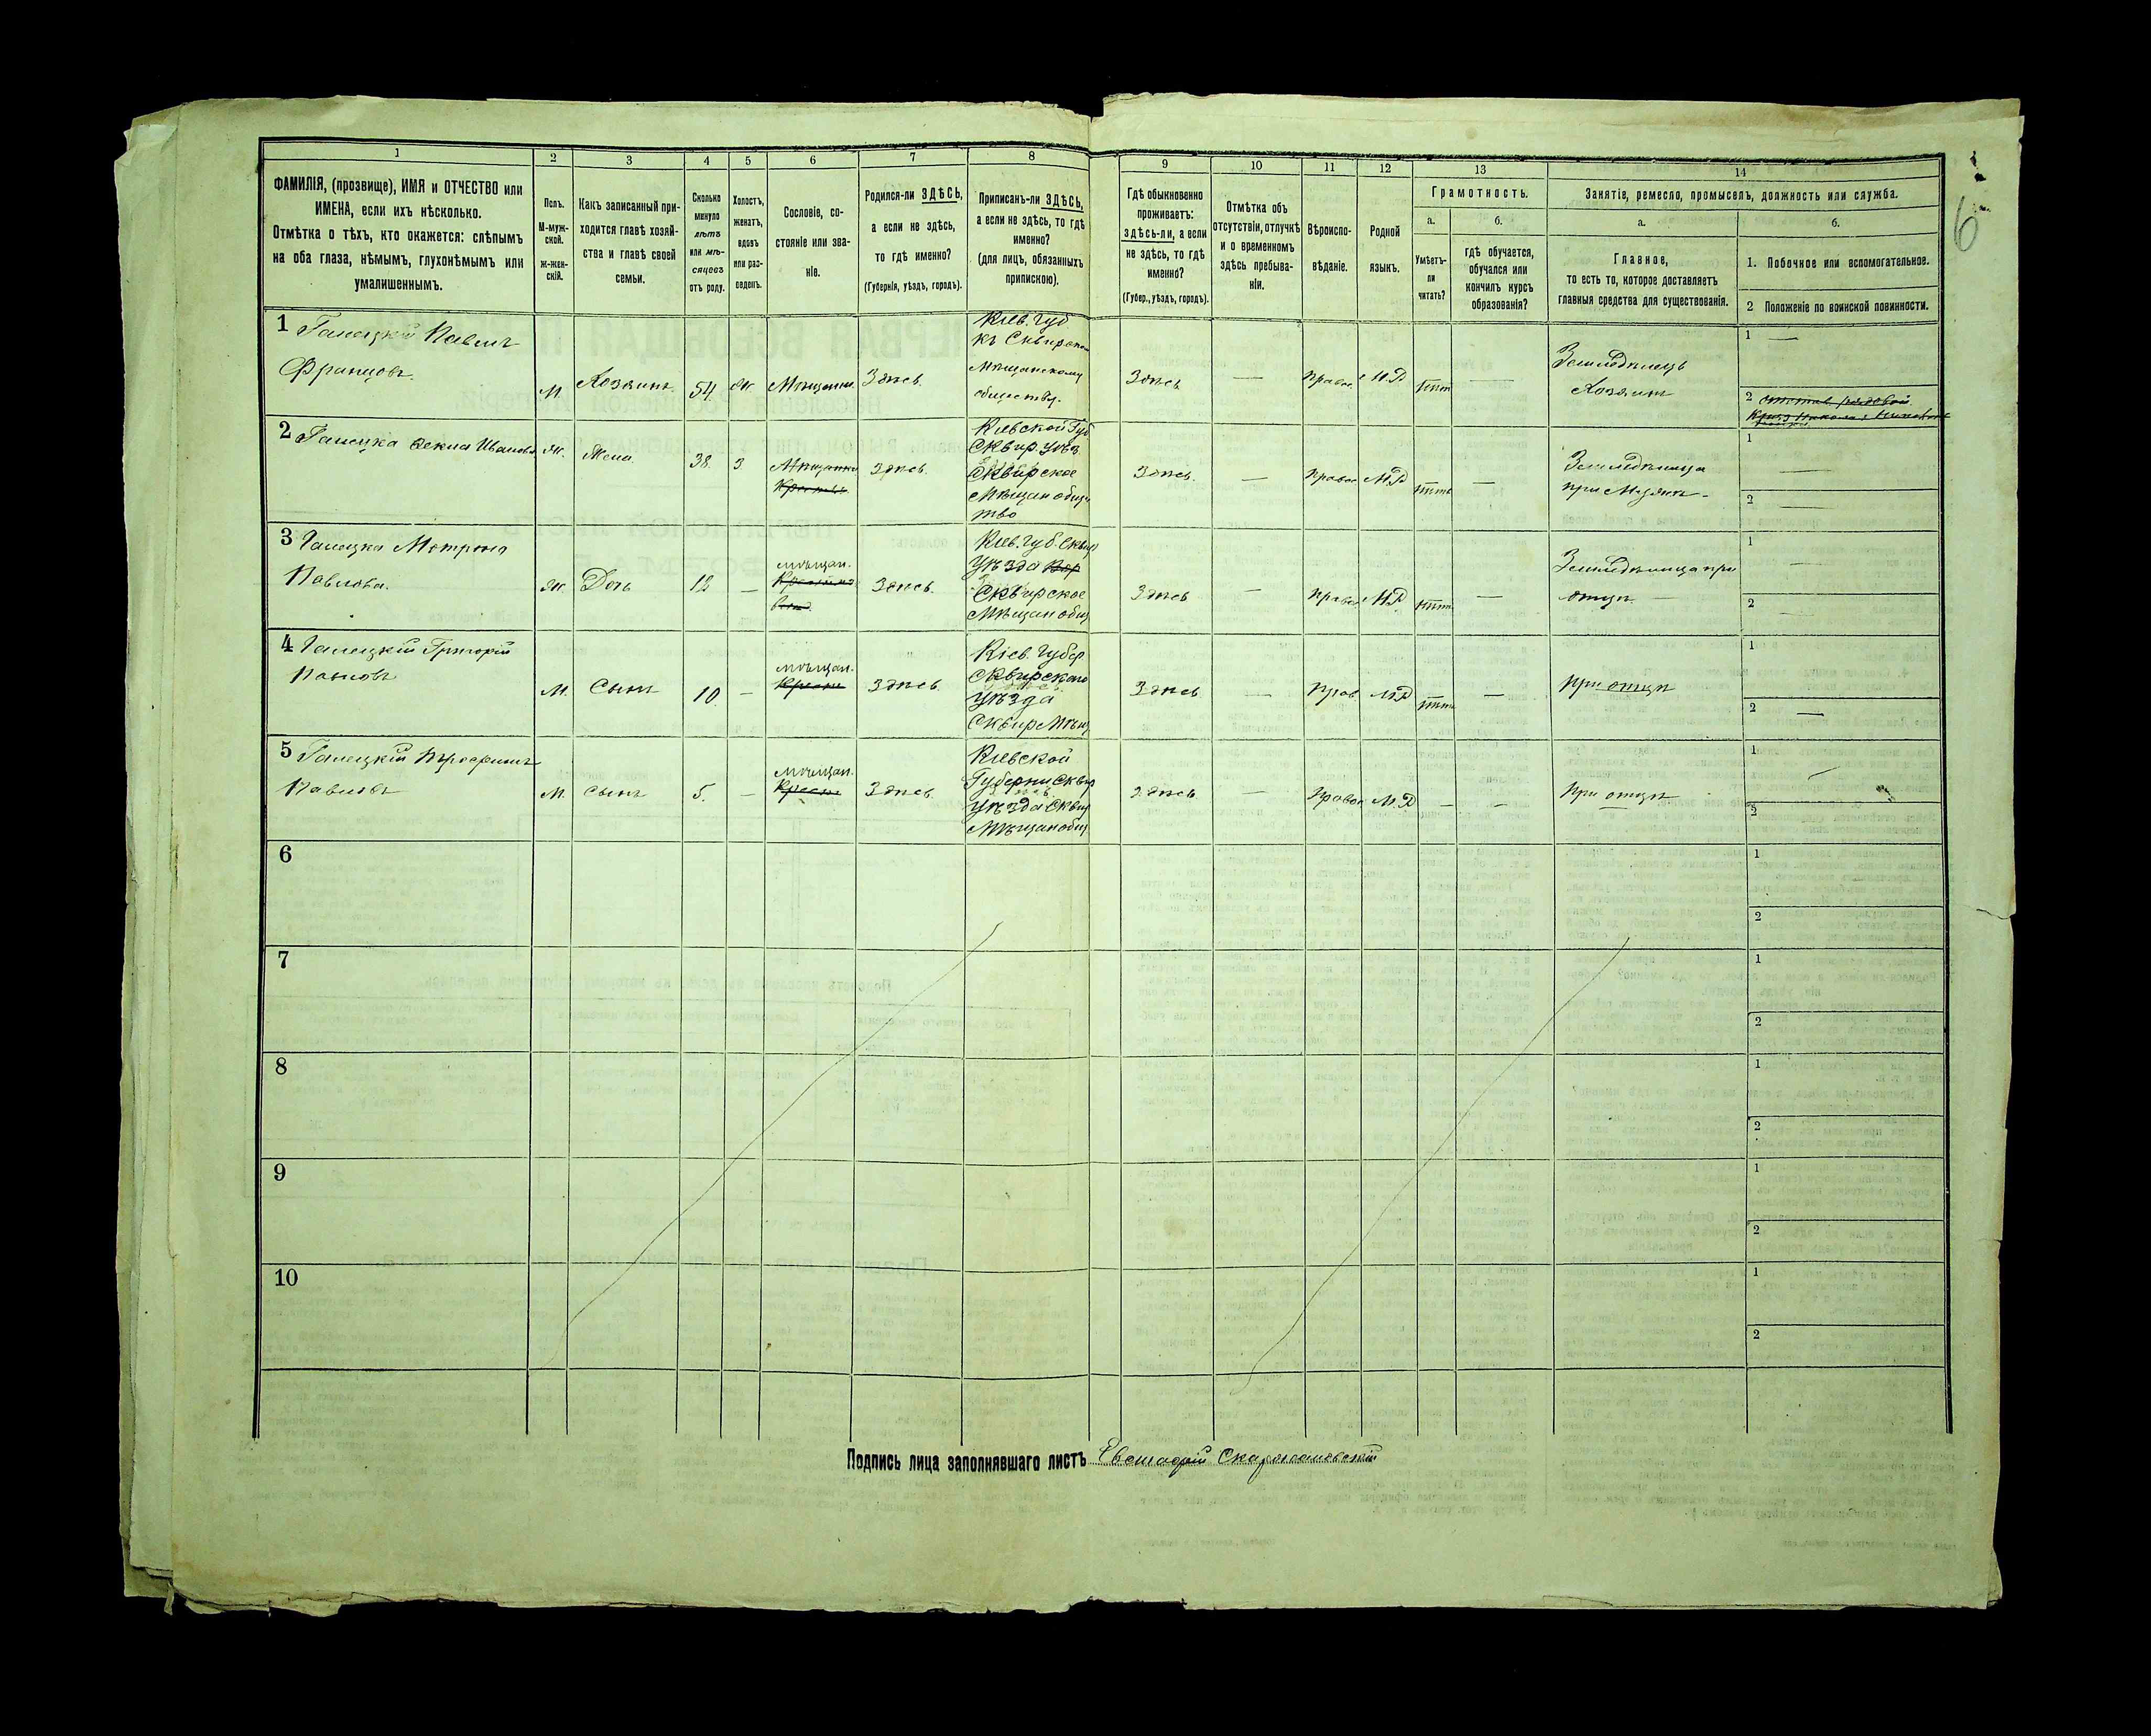 1 2 3 4 5 6 7 8 9 10 11 12 13 14
ФАМИЛІЯ, (прозвище), ИМЯ и ОТЧЕСТВО или
ИМЕНА, если ихъ нѣсколько.
Отмѣтка о тѣхъ, кто окажется: слѣпымъ
на оба глаза, нѣмымъ, глухонѣмымъ или
умалишеннымъ.
Полъ.
М-муж-
ской.
ж-жен-
скій.
Какъ записанный при-
ходится главѣ хозяй-
ства и главѣ своей
семьи.
Сколько
минуло
лѣтъ
или мѣ-
сяцевъ
отъ роду.
Холостъ,
женатъ,
вдовъ
или раз-
веденъ.
Сословіе, со-
стояніе или зва-
ніе.
Родился-ли ЗДѢСЬ,
а если не здѣсь,
то гдѣ именно?
(Губернія, уѣздъ, городъ).
Приписанъ-ли ЗДѢСЬ,
а если не здѣсь, то гдѣ
именно?
(для лицъ, обязанныхъ
припискою).
Гдѣ обыкновенно
проживаетъ:
здѣсь-ли, а если
не здѣсь, то гдѣ
именно?
(Губер., уѣздъ, городъ).
Отмѣтка объ
отсутствіи, отлучкѣ
и о временномъ
здѣсь пребыва-
ніи.
Вѣроиспо-
вѣданіе.
Родной
языкъ.
Грамотность.
а.
Умѣетъ-
ли
читать?
б.
гдѣ обучается,
обучался или
кончилъ курсъ
образованія?
Занятіе, ремесло, промыселъ, должность или служба.
а.
Главное,
то есть то, которое доставляетъ
главныя средства для существованія.
б.
1. Побочное или вспомогательное.
2 Положеніе по воинской повинности.
6
1 Галецкій Павелъ
Францовъ.
М. Хозяинъ 54. Ж. Мѣщанин. Здѣсь.
Кіев. Губ
къ Сквирском
Мѣщанскому
обществу.
Здѣсь — Правос М.Р нѣт —
Земледѣлецъ
Хозяинъ
1 —
2
2 Галецка Фекла Иванова Ж. Жена. 38. З
Мѣщанка
Здѣсь.
Кіевской Губ
Сквир. уѣз.
Сквирское
Мѣщан общес
тво
Здѣсь. — Правос М.Р нѣтъ —
Земледѣлица
при Мужѣ -
1 —
2 —
3 Галецка Мотрона
Павлова. Ж. Дочь 12 —
мѣщан.
Здѣсь.
Кіев. Губ. Сквир
Уѣзда
Сквирское
Мѣщан общ
Здѣсь — Правос М.Р нѣтъ —
Земледѣлица при
отцѣ
1 —
2 —
4 Галецкій Григорій
Павловъ М. Сынъ 10. —
мѣщан.
Здѣсь.
Кіев. Губер
Сквирского
уѣзда
Сквир Мѣщ
Здѣсь — Прав М.Р нѣтъ — При отцѣ
1
2 —
5 Галецкій
Павловъ М. Сынъ 5. —
мѣщан.
Здѣсь.
Кіевской
Губерни Сквир
уѣзда Сквир
Мѣщан общ
здѣсь — Правос М.Р — — При отцѣ
1
2
6
1
2
7
1
2
8
1
2
9
1
2
10
1
2
Подпись лица заполнявшаго листъ